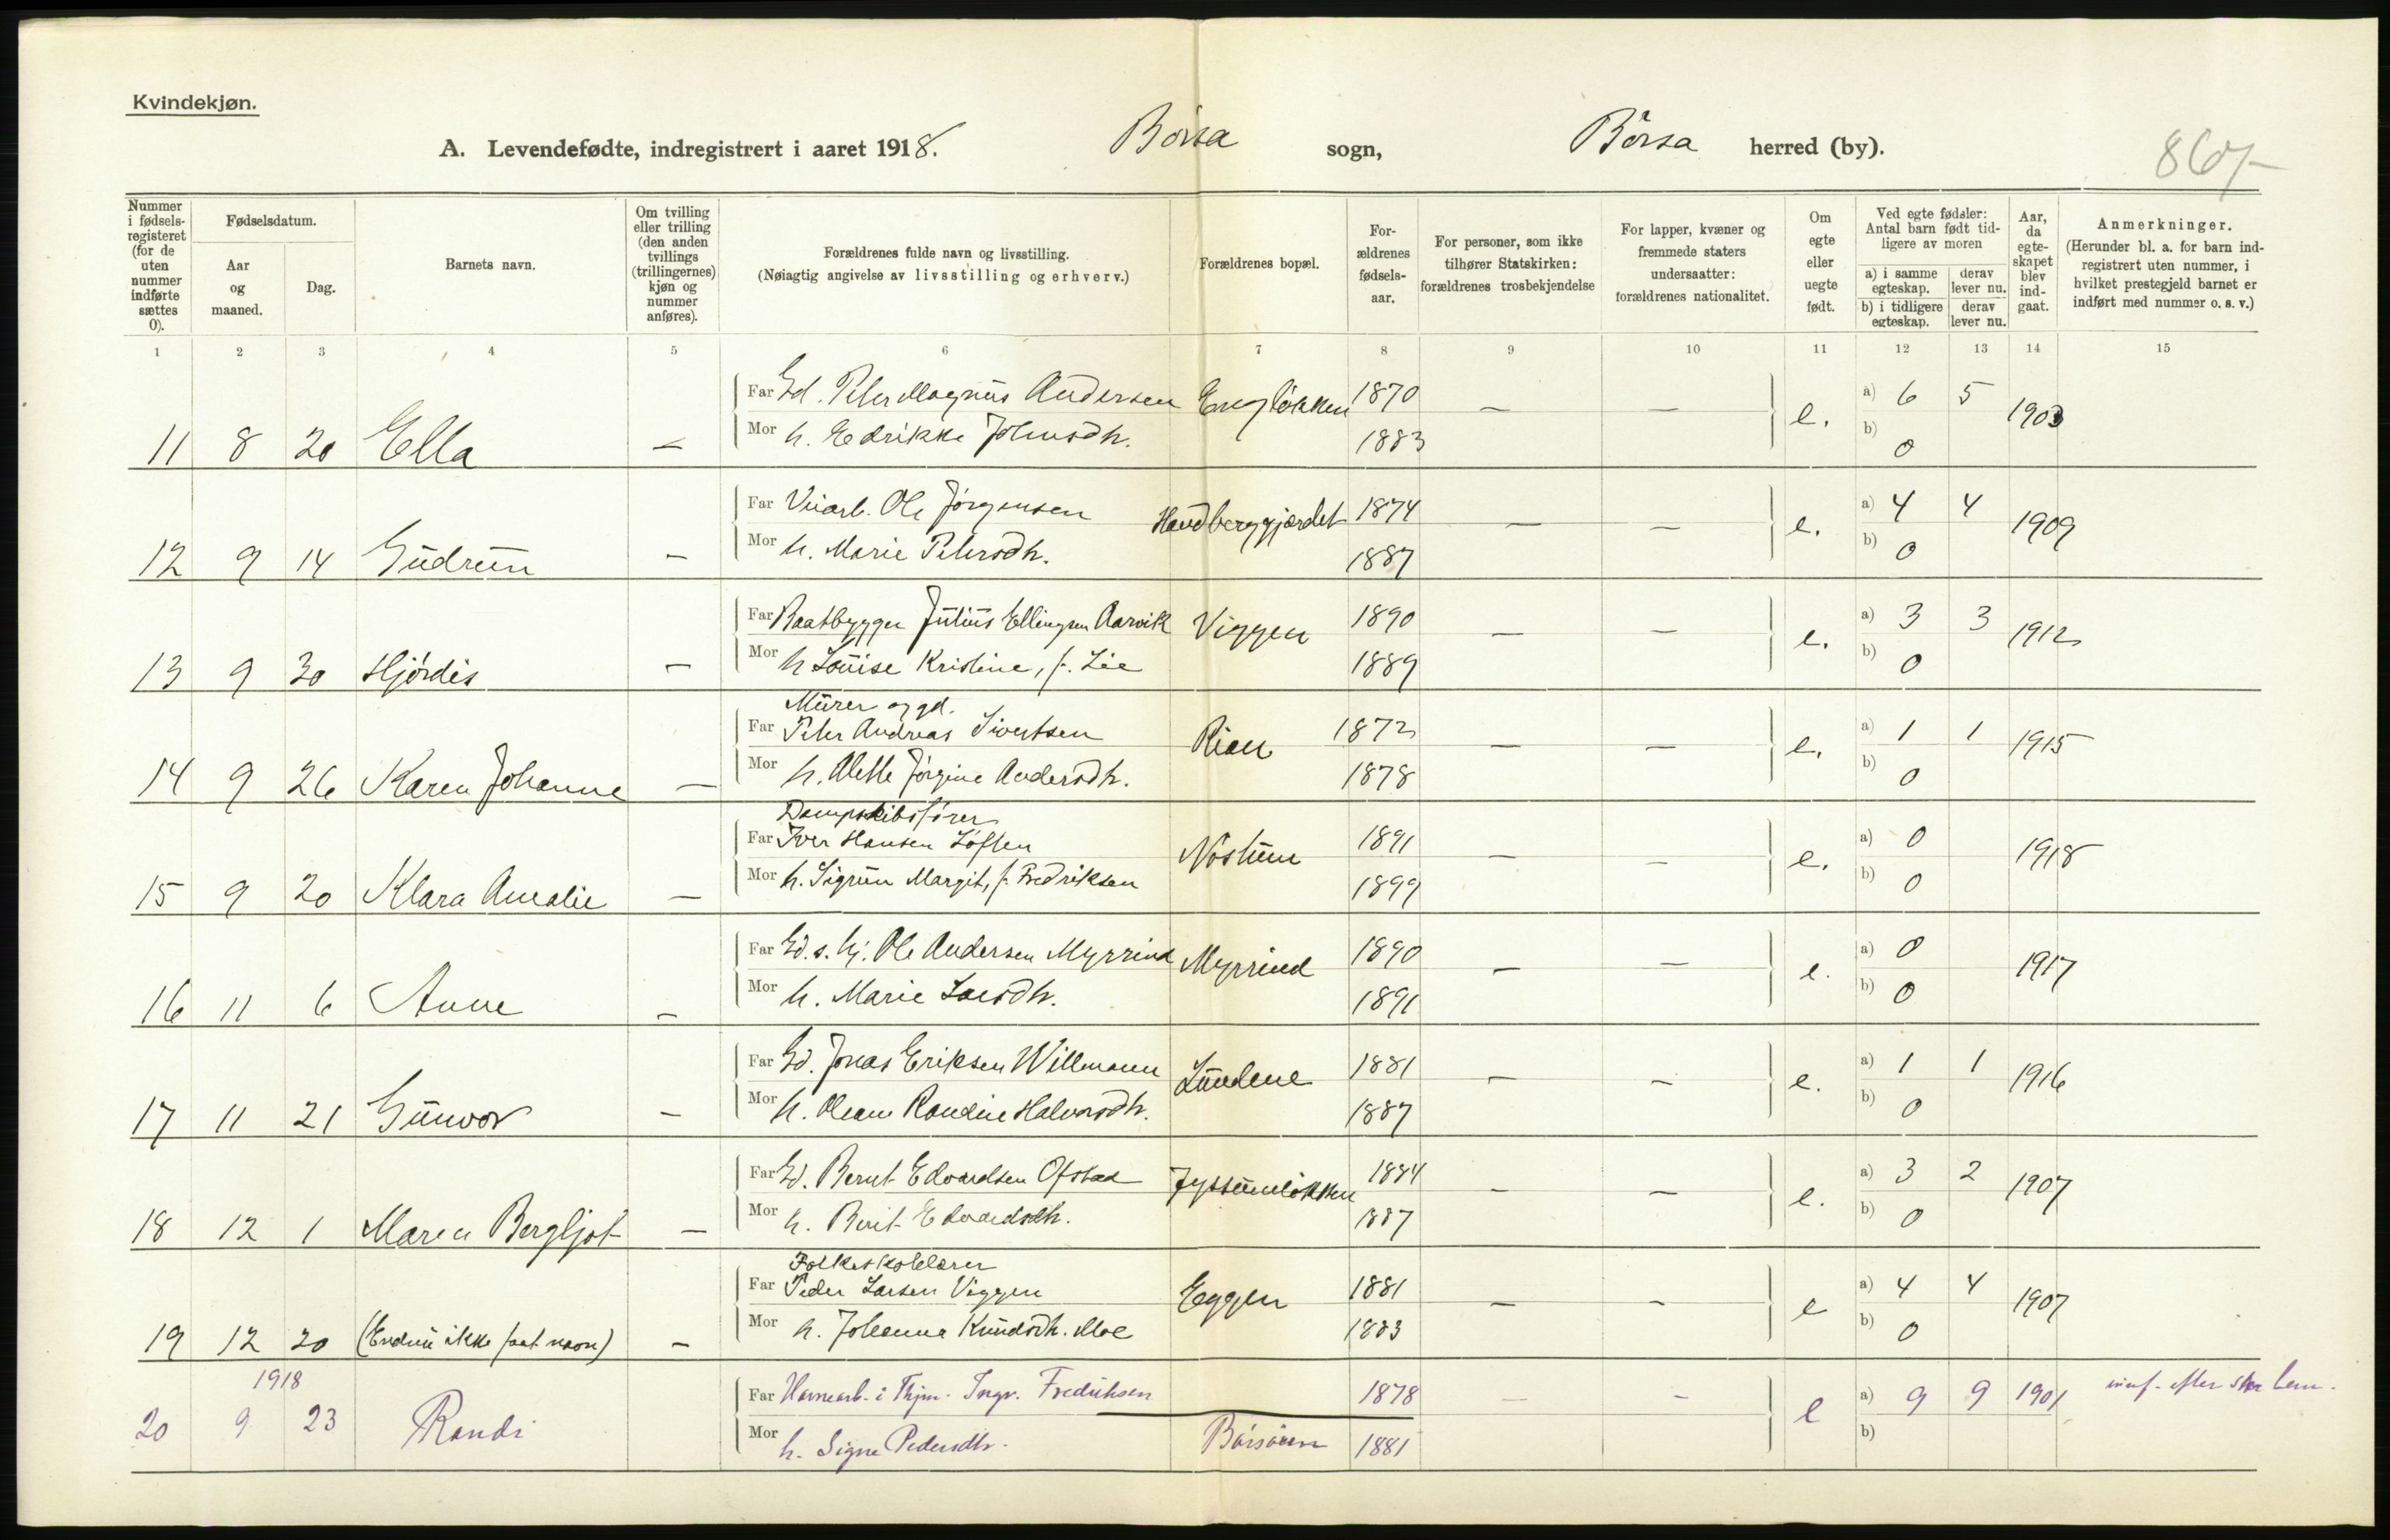 Kvindekjøn.
A. Levendefødte, indregistrert i aaret 1918. Børsa sogn, Børsa herred (by).
867
Nummer i fødselsregisteret (for de uten nummer indførte sættes 0).
Fødselsdatum.
Aar og maaned.
Dag.
Barnets navn.
Om tvilling eller trilling (den anden tvillings (trillingernes) kjøn og nummer anføres).
Forældrenes fulde navn og livsstilling.
(Nøiagtig angivelse av livsstilling og erhverv.)
Forældrenes bopæl.
Forældrenes fødselsaar.
For personer, som ikke tilhører Statskirken: forældrenes trosbekjendelse
For lapper, kvæner og fremmede staters undersaatter: forældrenes nationalitet.
Om egte eller uegte født.
Ved egte fødsler: Antal barn født tidligere av moren
a) i samme egteskap. derav lever nu.
b) i tidligere egteskap. derav lever nu.
Aar, da egteskapet blev indgaat.
Anmerkninger.
(Herunder bl. a. for barn indregistrert uten nummer, i hvilket prestegjeld barnet er indført med nummer o. s. v.)
1 2 3 4 5 6 7 8 9 10 11 12 13 14 15
Far Gd. Peter Magnus Andersen Engløkken 1870 — — e. a) 6 5 1903
11 8 20 Ella — Mor h. Edrikke Johnsdtr. 1883 b) 0
Far Veiarb. Ole Jørgensen Haudberggjærdet 1874 — — e. a) 4 4 1909
12 9 14 Gudrun — Mor h. Marie Petersdtr. 1887 b) 0
Far Baatbygger Julius Ellingsen Aarvik Viggen 1890 — — e. a) 3 3 1912
13 9 30 Hjørdis — Mor h. Louise Kristine, f. Lie 1889 b) 0
Murer og gd.
Far Peter Andreas Sivertsen Rian 1872 — — e. a) 1 1 1915
14 9 26 Karen Johanne — Mor h. Alette Jørgine Andersdtr. 1878 b) 0
Dampskibsfører
Far Iver Hansen Løften Nostun 1891 — — e. a) 0 1918
15 9 20 Klara Amalie — Mor h. Sigrun Margit, f. Fredriksen 1899 b) 0
Far Gd. s. hj. Ole Andersen Myrrind Myrrind 1890 — — e. a) 0 1917
16 11 6 Anne — Mor h. Marie Larsdtr. 1891 b) 0
Far Gd. Jonas Eriksen Willmann Lundene 1881 — — e. a) 1 1 1916
17 11 21 Gunvor — Mor h. Oleane Randine Halvorsdtr. 1887 b) 0
Far Gd. Bernt Edvardsen Ofstad Jyssumløkken 1884 — — e. a) 3 2 1907
18 12 1 Maren Bergljot — Mor h. Berit Edvardsdtr. 1887 b) 0
Folkeskolelærer
Far Peder Larsen Viggen Eggen 1881 — — e a) 4 4 1907
19 12 20 (Endnu ikke faat navn) — Mor h. Johanna Knudsdtr. Moe 1883 b) 0
1918
Far Havnearb. i Thjm. Ingv. Fredriksen 1878 — — e a) 9 9 1901
20 9 23 Randi Mor h. Signe Pedersdtr. Børsøren 1881 b)